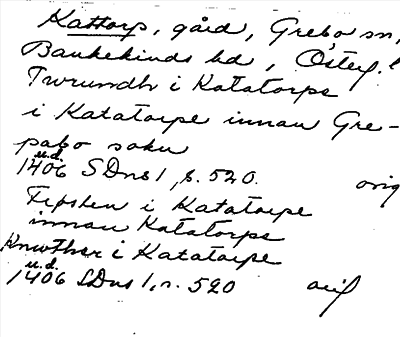 Kattorp, gård, Grebo sn,
Bankekinds hd, Österg. l
Twrundh i Katatorpe
i Katatorpe innan Gre-
pabo sokn
u.d.
1406 SDns 1, s. 520. orig
i Katatorpe
innan Katatorpe
Knwther i Katatorpe
u.d.
1406 SDns 1, s. 520 orig